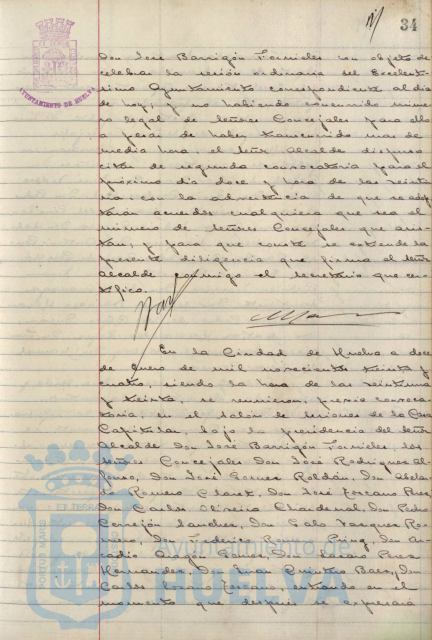 34
AYUNTAMIENTO DE HUELVA
Don José Barrigón Fornieles con objeto de
celebrar la sesión ordinaria del Excelen-
tísimo Ayuntamiento correspondiente al día
de hoy, y no habiendo concurrido núme-
ro legal de señores Concejales para ello
a pesar de haber transcurrido más de
media hora, el señor Alcalde dispuso
citar de segunda convocatoria para el
próximo día doce y hora de las veintiu-
na, con la advertencia de que se adop-
tarán acuerdos cualquiera que sea el
número de señores Concejales que asis-
tan, y para que conste se extiende la
presente diligencia que firma el señor
Alcalde conmigo el Secretario que cer-
tifico.
En la Ciudad de Huelva a doce
de Enero de mil novecientos treinta y
cuatro, siendo la hora de las veintiuna
y treinta, se reunieron, previa convoca-
toria, en el salón de sesiones de la Casa
Capitular, bajo la presidencia del señor
Alcalde Don José Barrigón Fornieles, los
señores Concejales Don José Rodríguez Al-
fonso, Don José Gómez Roldán, Don Abelar-
do Romero Claret, Don José Toscano Pérez,
Don Carlos Oliveira Chardenal, Don Pedro
Cerrejón Sánchez, Don Galo Vázquez Ro-
mero, Don Federico Pring, Don Ar-
cadio Gómez, Don Pérez
Hernández, Don Juan Quintero Báez, Don
Carlos Toscano, entrando en el
momento que después se expresará
PORTUS MARIS ET TERRAE
Ayuntamiento de
HUELVA